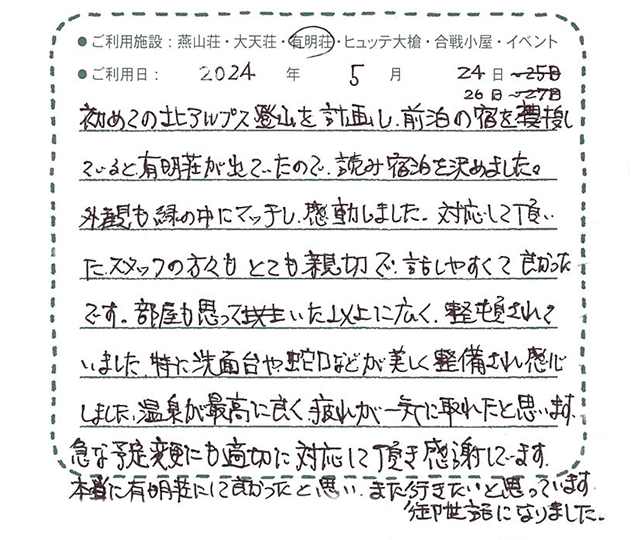 ● ご利用施設：燕山荘・大天荘・有明荘・ヒュッテ大槍・合戦小屋・イベント
● ご利用日： 2024 年 5 月 24日~25日
26日~27日
初めての北アルプス登山を計画し、前泊の宿を検
していると有明荘が出ていたので、読み宿泊を決めました。
外観も緑の中にマッチし、感動しました。対応して頂い
た、スタッフの方々もとても親切で、話しやすくて良かった
です。部屋も思って いた以上に広く、整頓されて
いました。特に洗面台や蛇口などが美しく整備され感心
しました。温泉が最高に良く、疲れが一気に取れたと思います。
急な予定変更にも適切に対応して頂き感謝しています。
本当に有明荘にして良かったと思い、また行きたいと思っています。
御世話になりました。